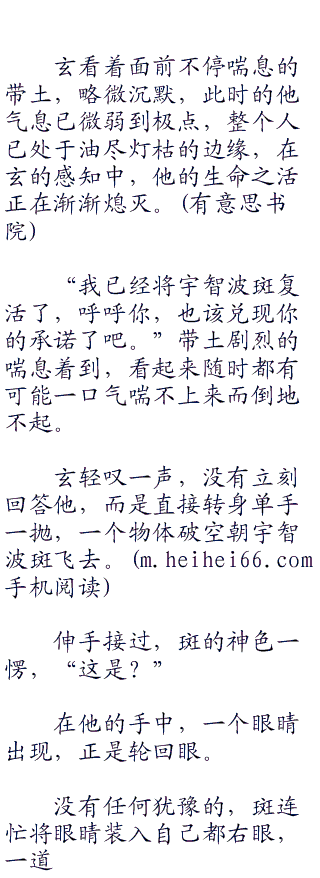 玄看着面前不停喘息的
带土，略微沉默，此时的他
气息已微弱到极点，整个人
已处于油尽灯枯的边缘，在
玄的感知中，他的生命之活
正在渐渐熄灭。(有意思书
院)
“我已经将宇智波斑复
活了，呼呼你，也该兑现你
的承诺了吧。”带土剧烈的
喘息着到，看起来随时都有
可能一口气喘不上来而倒地
不起。
玄轻叹一声，没有立刻
回答他，而是直接转身单手
一抛，一个物体破空朝宇智
波斑飞去。(m.heihei66.com
手机阅读)
伸手接过，斑的神色一
愣，“这是？”
在他的手中，一个眼睛
出现，正是轮回眼。
没有任何犹豫的，斑连
忙将眼睛装入自己都右眼，
一道